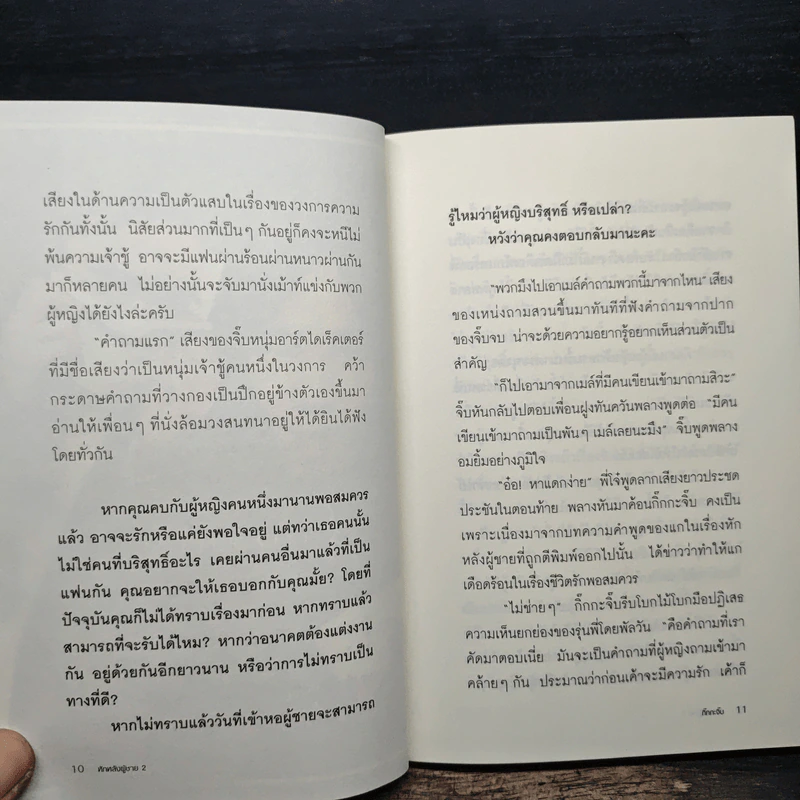 เสียงในด้านความเป็นตัวแสบในเรื่องของวงการความ
รักกันทั้งนั้น นิสัยส่วนมากที่เป็นๆ กันอยู่ก็คงจะหนีไม่
พ้นความเจ้าชู้ อาจจะมีแฟนผ่านร้อนผ่านหนาวผ่านกัน
มาก็หลายคน ไม่อย่างนั้นจะจับมานั่งเม้าท์แข่งกับพวก
ผู้หญิงได้ยังไงล่ะครับ
"คำถามแรก" เสียงของจิ๊บหนุ่มอาร์ตไดเร็คเตอร์
ที่มีชื่อเสียงว่าเป็นหนุ่มเจ้าชู้คนหนึ่งในวงการ คว้า
กระดาษคำถามที่วางกองเป็นปึกอยู่ข้างตัวเองขึ้นมา
อ่านให้เพื่อนๆ ที่นั่งล้อมวงสนทนาอยู่ให้ได้ยินได้ฟัง
โดยทั่วกัน
หากคุณคบกับผู้หญิงคนหนึ่งมานานพอสมควร
แล้ว อาจจะรักหรือแค่ยังพอใจอยู่ แต่ทว่าเธอคนนั้น
ไม่ใช่คนที่บริสุทธิ์อะไร เคยผ่านคนอื่นมาแล้วที่เป็น
แฟนกัน คุณอยากจะให้เธอบอกกับคุณมั้ย? โดยที่
ปัจจุบันคุณก็ไม่ได้ทราบเรื่องมาก่อน หากทราบแล้ว
สามารถที่จะรับได้ไหม? หากว่าอนาคตต้องแต่งงาน
กัน อยู่ด้วยกันอีกยาวนาน หรือว่าการไม่ทราบเป็น
ทางที่ดี?
หากไม่ทราบแล้ววันที่เข้าหอผู้ชายจะสามารถ
10 หักหลังผู้ชาย 2
รู้ไหมว่าผู้หญิงบริสุทธิ์ หรือเปล่า?
หวังว่าคุณคงตอบกลับมานะคะ
"พวกมึงไปเอาเมล์คำถามพวกนี้มาจากไหน" เสียง
ของเหน่งถามสวนขึ้นมาทันทีที่ฟังคำถามจากปาก
ของจิ๊บจบ น่าจะด้วยความอยากรู้อยากเห็นส่วนตัวเป็น
สำคัญ
"ก็ไปเอามาจากเมล์ที่มีคนเขียนเข้ามาถามสิวะ"
จิ๊บหันกลับไปตอบเพื่อนฝูงทันควันพลางพูดต่อ "มีคน
เขียนเข้ามาถามเป็นพันๆ เมล์เลยนะมึง" จิ๊บพูดพลาง
อมยิ้มอย่างภูมิใจ
"อ๋อ! หาแดกง่าย" พี่โจ๋พูดลากเสียงยาวประชด
ประชันในตอนท้าย พลางหันมาค้อนกิ๊กกะจิ๊บ คงเป็น
เพราะเนื่องมาจากบทความคำพูดของแกในเรื่องหัก
หลังผู้ชายที่ถูกตีพิมพ์ออกไปนั้น ได้ข่าวว่าทำให้แก
เดือดร้อนในเรื่องชีวิตรักพอสมควร
"ไม่ช่ายๆ" กิ๊กกะจิ๊บรีบโบกไม้โบกมือปฏิเสธ
ความเห็นยกย่องของรุ่นพี่โดยพัลวัน "คือคำถามที่เรา
คัดมาตอบเนี่ย มันจะเป็นคำถามที่ผู้หญิงถามเข้ามา
คล้ายๆ กัน ประมาณว่าก่อนเค้าจะมีความรัก เค้าก็
กิ๊กกะจิ๊บ 11